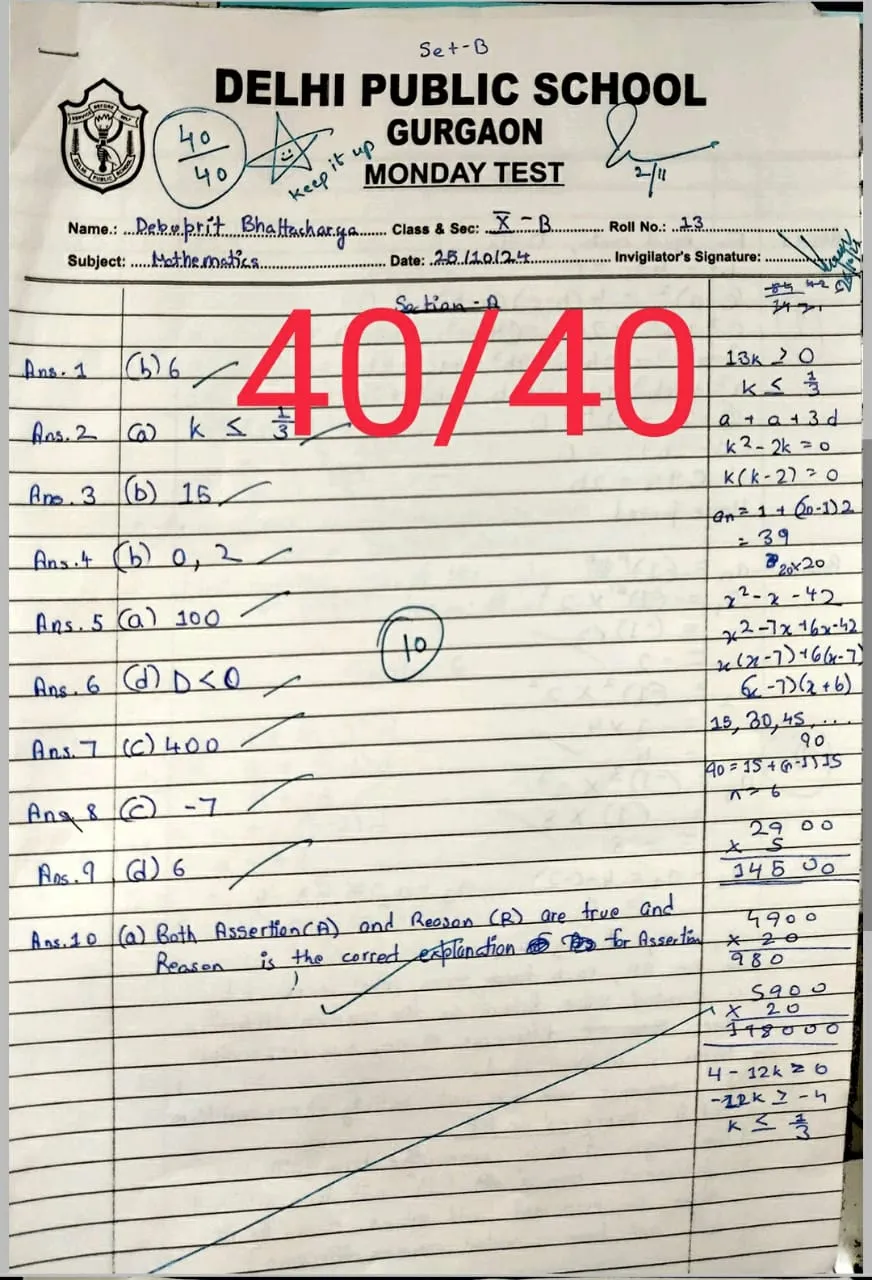 Set-B
DELHI PUBLIC SCHOOL
GURGAON
MONDAY TEST
40
40
keep it up
2/11
Name.: Debaprit Bhattacharya Class & Sec: X-B Roll No.: 13
Subject: Mathematics Date: 25/10/24 Invigilator's Signature:
Section-A
40/40
Ans. 1 (b) 6
Ans. 2 (a) k ≤ 1/3
Ans. 3 (b) 15
Ans. 4 (b) 0, 2
Ans. 5 (a) 100
10
Ans. 6 (d) D<0
Ans. 7 (c) 400
Ans. 8 (c) -7
Ans. 9 (d) 6
Ans. 10 (a) Both Assertion(A) and Reason (R) are true and
Reason is the correct explanation for Assertion
13k ≥ 0
k ≤ 1/3
a + a + 3d
k²-2k = 0
k(k-2) = 0
an = 1 + (20-1)2
= 39
20x20
x²-x-42
x²-7x+6x-42
x(x-7)+6(x-7)
(x-7)(x+6)
15, 30, 45, ...
90
90 = 15 + (n-1)15
n = 6
2900
x 5
14500
4900
x 20
980
5900
x 20
118000
4-12k ≥ 0
-12k ≥ -4
k ≤ 1/3